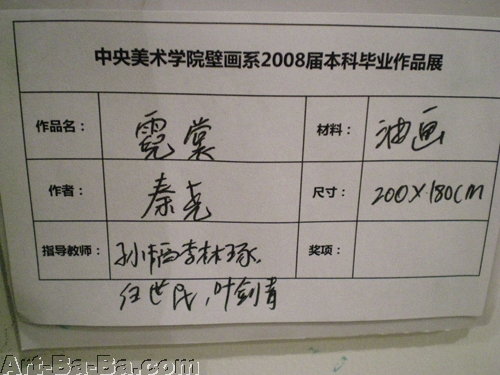 中央美术学院壁画系2008届本科毕业作品展
作品名： 霓棠 材料： 油画
作者： 秦尧 尺寸： 200X180CM
指导教师： 孙韬 李林琢. 奖项：
任世民，叶剑青
Art-Ba-Ba.com